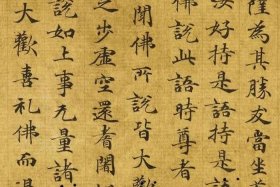 薩為其勝友當坐
汝好持是語持是語
佛說此語時尊者
聞佛所說皆大
足步虛空還耆闍
說如上事无量諸
大歡喜礼佛而退